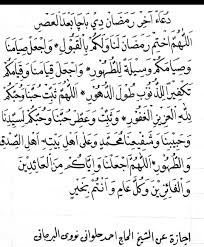 دعاء آخر رمضان دي باچا بعد العصر
اللهم اختم رمضان لنا ولكم بالقبول * واجعل صيامنا
وصيامكم وسيلة للظهور * واجعل قيامنا وقيامكم
تكفيرا للذنوب طول الدهور * اللهم ثبت حبنا وحبكم
لله العزيز الغفور * وثبت عظمتنا وحبكم لسيدنا
وحبيبنا وشفيعنا محمد وعلى أهل بيته أهل الصدق
والظهور * اللهم اجعلنا وإياكم من العائدين
والفائزين وكل عام وأنتم بخير
اجازة عن الشيخ الحاج احمد حلواني نووي البرماني